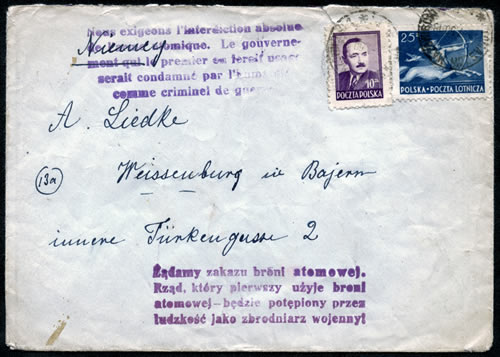 Nous exigeons l'interdiction absolue
Niemcy
Le gouverne-
ment qui le premier en ferait
serait condamné par
comme criminel de
10 ZŁ
POCZTA POLSKA
25 ZŁ
POLSKA • POCZTA LOTNICZA
A. Liedke
13a
Weissenburg in Bajern
innere Türkengasse 2
Żądamy zakazu broni atomowej.
Rząd, który pierwszy użyje broni
atomowej – będzie potępiony przez
ludzkość jako zbrodniarz wojenny!